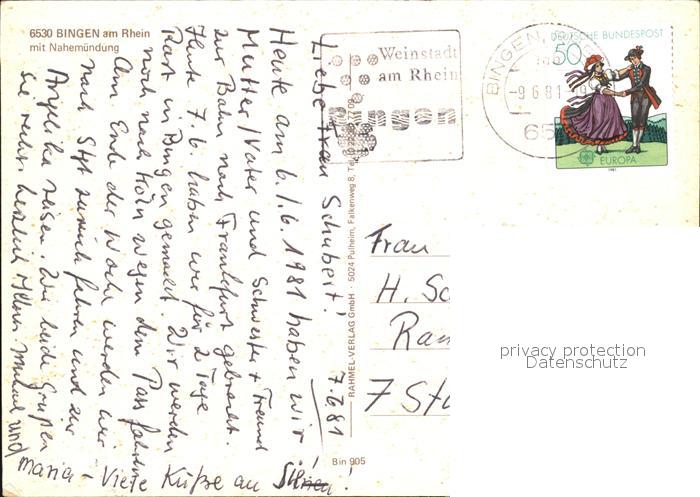 6530 BINGEN am Rhein
mit Nahemündung
7.6.81
Liebe Frau Schubert!
Heute am 6./6. 1981 haben wir
Mutter/Vater und Schwester + Freund
zur Bahn nach Frankfurt gebracht.
Heute 7.6. haben wir für 2 Tage
Rast in Bingen gemacht. Wir werden
noch nach Köln wegen dem Pass fahren
Am Ende der Woche werden wir
nach Stgt zurück fahren und zur
Angelika reisen. Wir beide Grüßen
Sie recht herzlich
und
Maria - Viele Küße an
Bin 905
RAHMEL-VERLAG GmbH · 5024 Pulheim, Falkenweg 8,
Weinstadt
am Rhein
Bingen
BINGEN,
-9.6.81-
65
DEUTSCHE BUNDESPOST
50
EUROPA
1981
Frau
H. Sc
Ran
7 Stu
privacy protection
Datenschutz